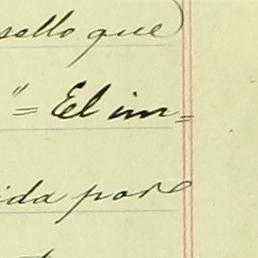 sello que
"= El im=
ida por